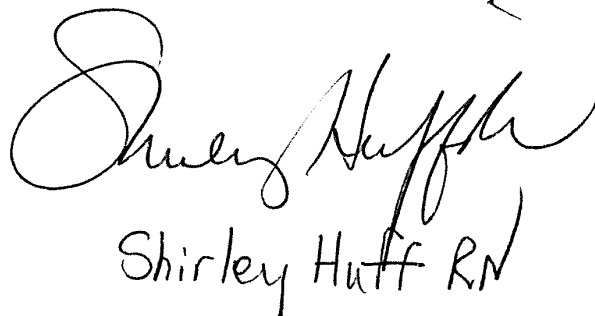 Shirley Huff RN
Shirley Huff RN